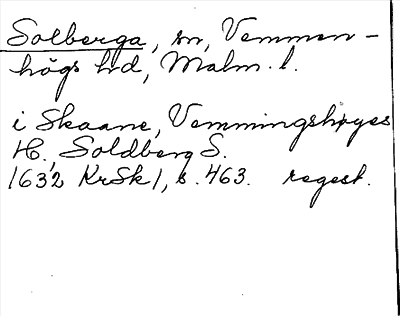 Solberga, sn, Vemmen-
högs hd, Malm. l.
i Skaane, Vemmingshøyes
H., Soldberg S.
1632 KrSk 1, s. 463. regest.